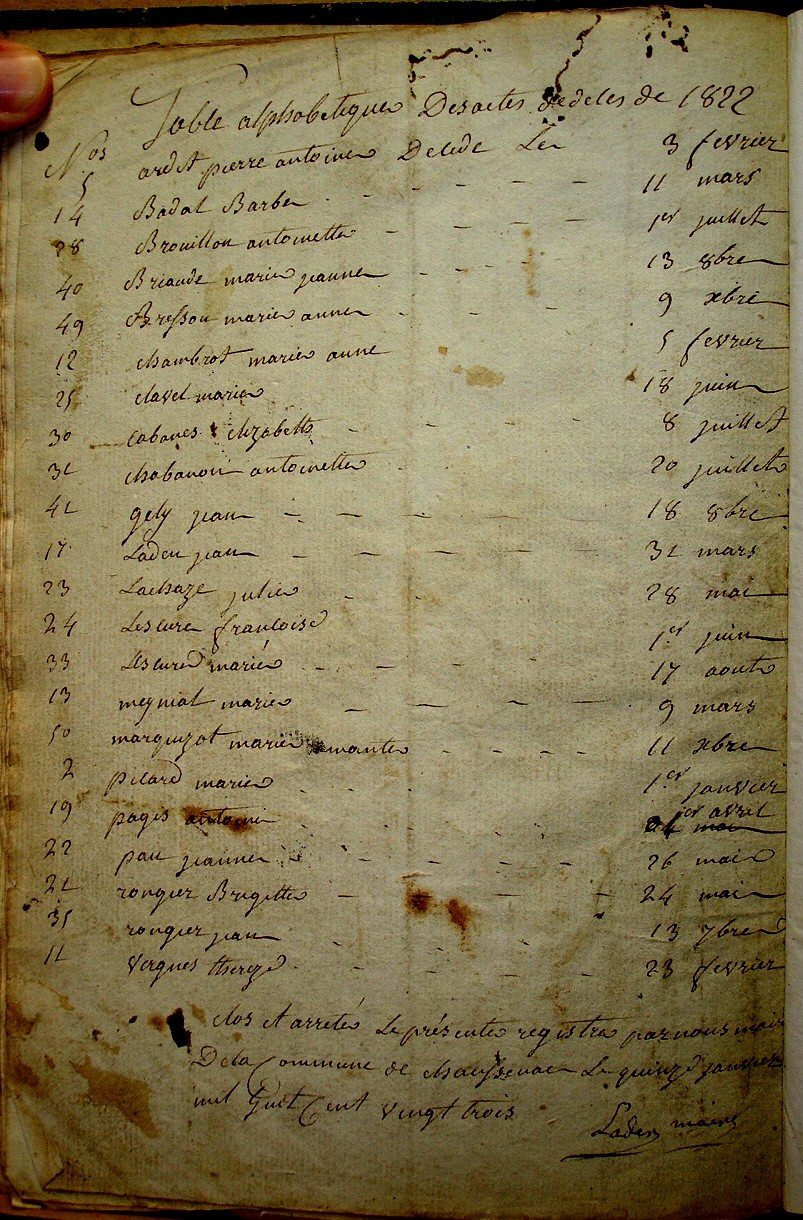 Table alphabetique Des actes dedeces de 1822
Nos
5 ardit pierre antoine Décédé Le 3 fevrier
14 Badal Barbe 11 mars
28 Brouillon antoinette 1er juillet
40 Briaude marie jeanne 13 8bre
49 Bresson marie anne 9 xbre
12 chambrot marie anne 5 fevrier
25 clavel marie 18 juin
30 cabanes elizabeth 8 juillet
31 chabanon antoinette 20 juillet
41 gely jean 18 8bre
17 Laden jean 31 mars
23 Lachaze julie 28 mai
24 Lescure francoise 1er juin
33 Lescure marie 17 aout
13 meyniat marie 9 mars
50 marquizot marie amante 11 xbre
2 picard marie 1er janvier
19 pages antoine 1er avril
22 pau jeanne 26 mai
21 rongier Brigitte 24 mai
35 rongier jean 13 7bre
11 Vergnes thereze 23 fevrier
clos et arreté Le présente registre par nous maire
De la Commune de chaussenac Le quinze janvier
mil huit Cent vingt trois
Laden maire